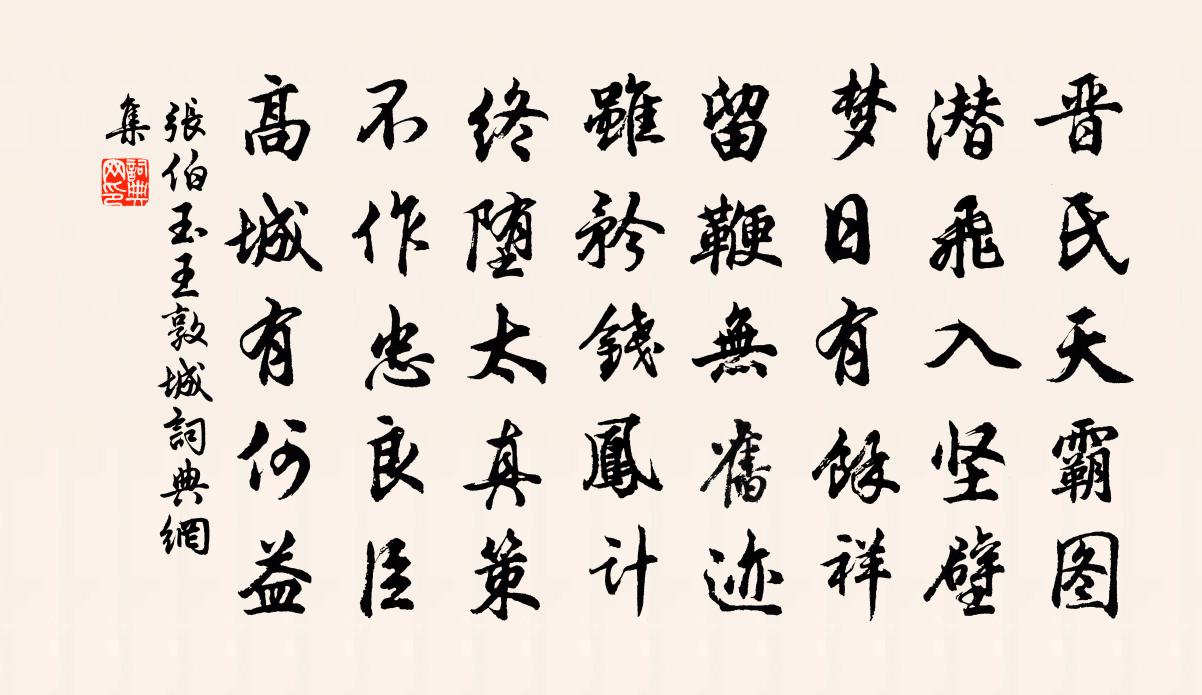 晋氏天霸图
潜飛入坚壁
梦日有餘祥
留鞭無舊迹
雖矜錢鳳计
终堕太真策
不作忠良臣
高城有何益
張伯玉王敦城詞典網
集
詞典
网印